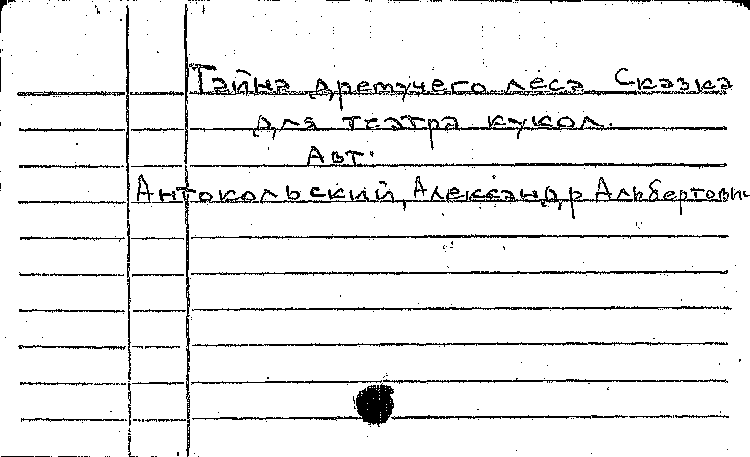 Тайна дремучего леса. Сказка
для театра кукол.
Авт.
Антокольский, Александр Альбертович